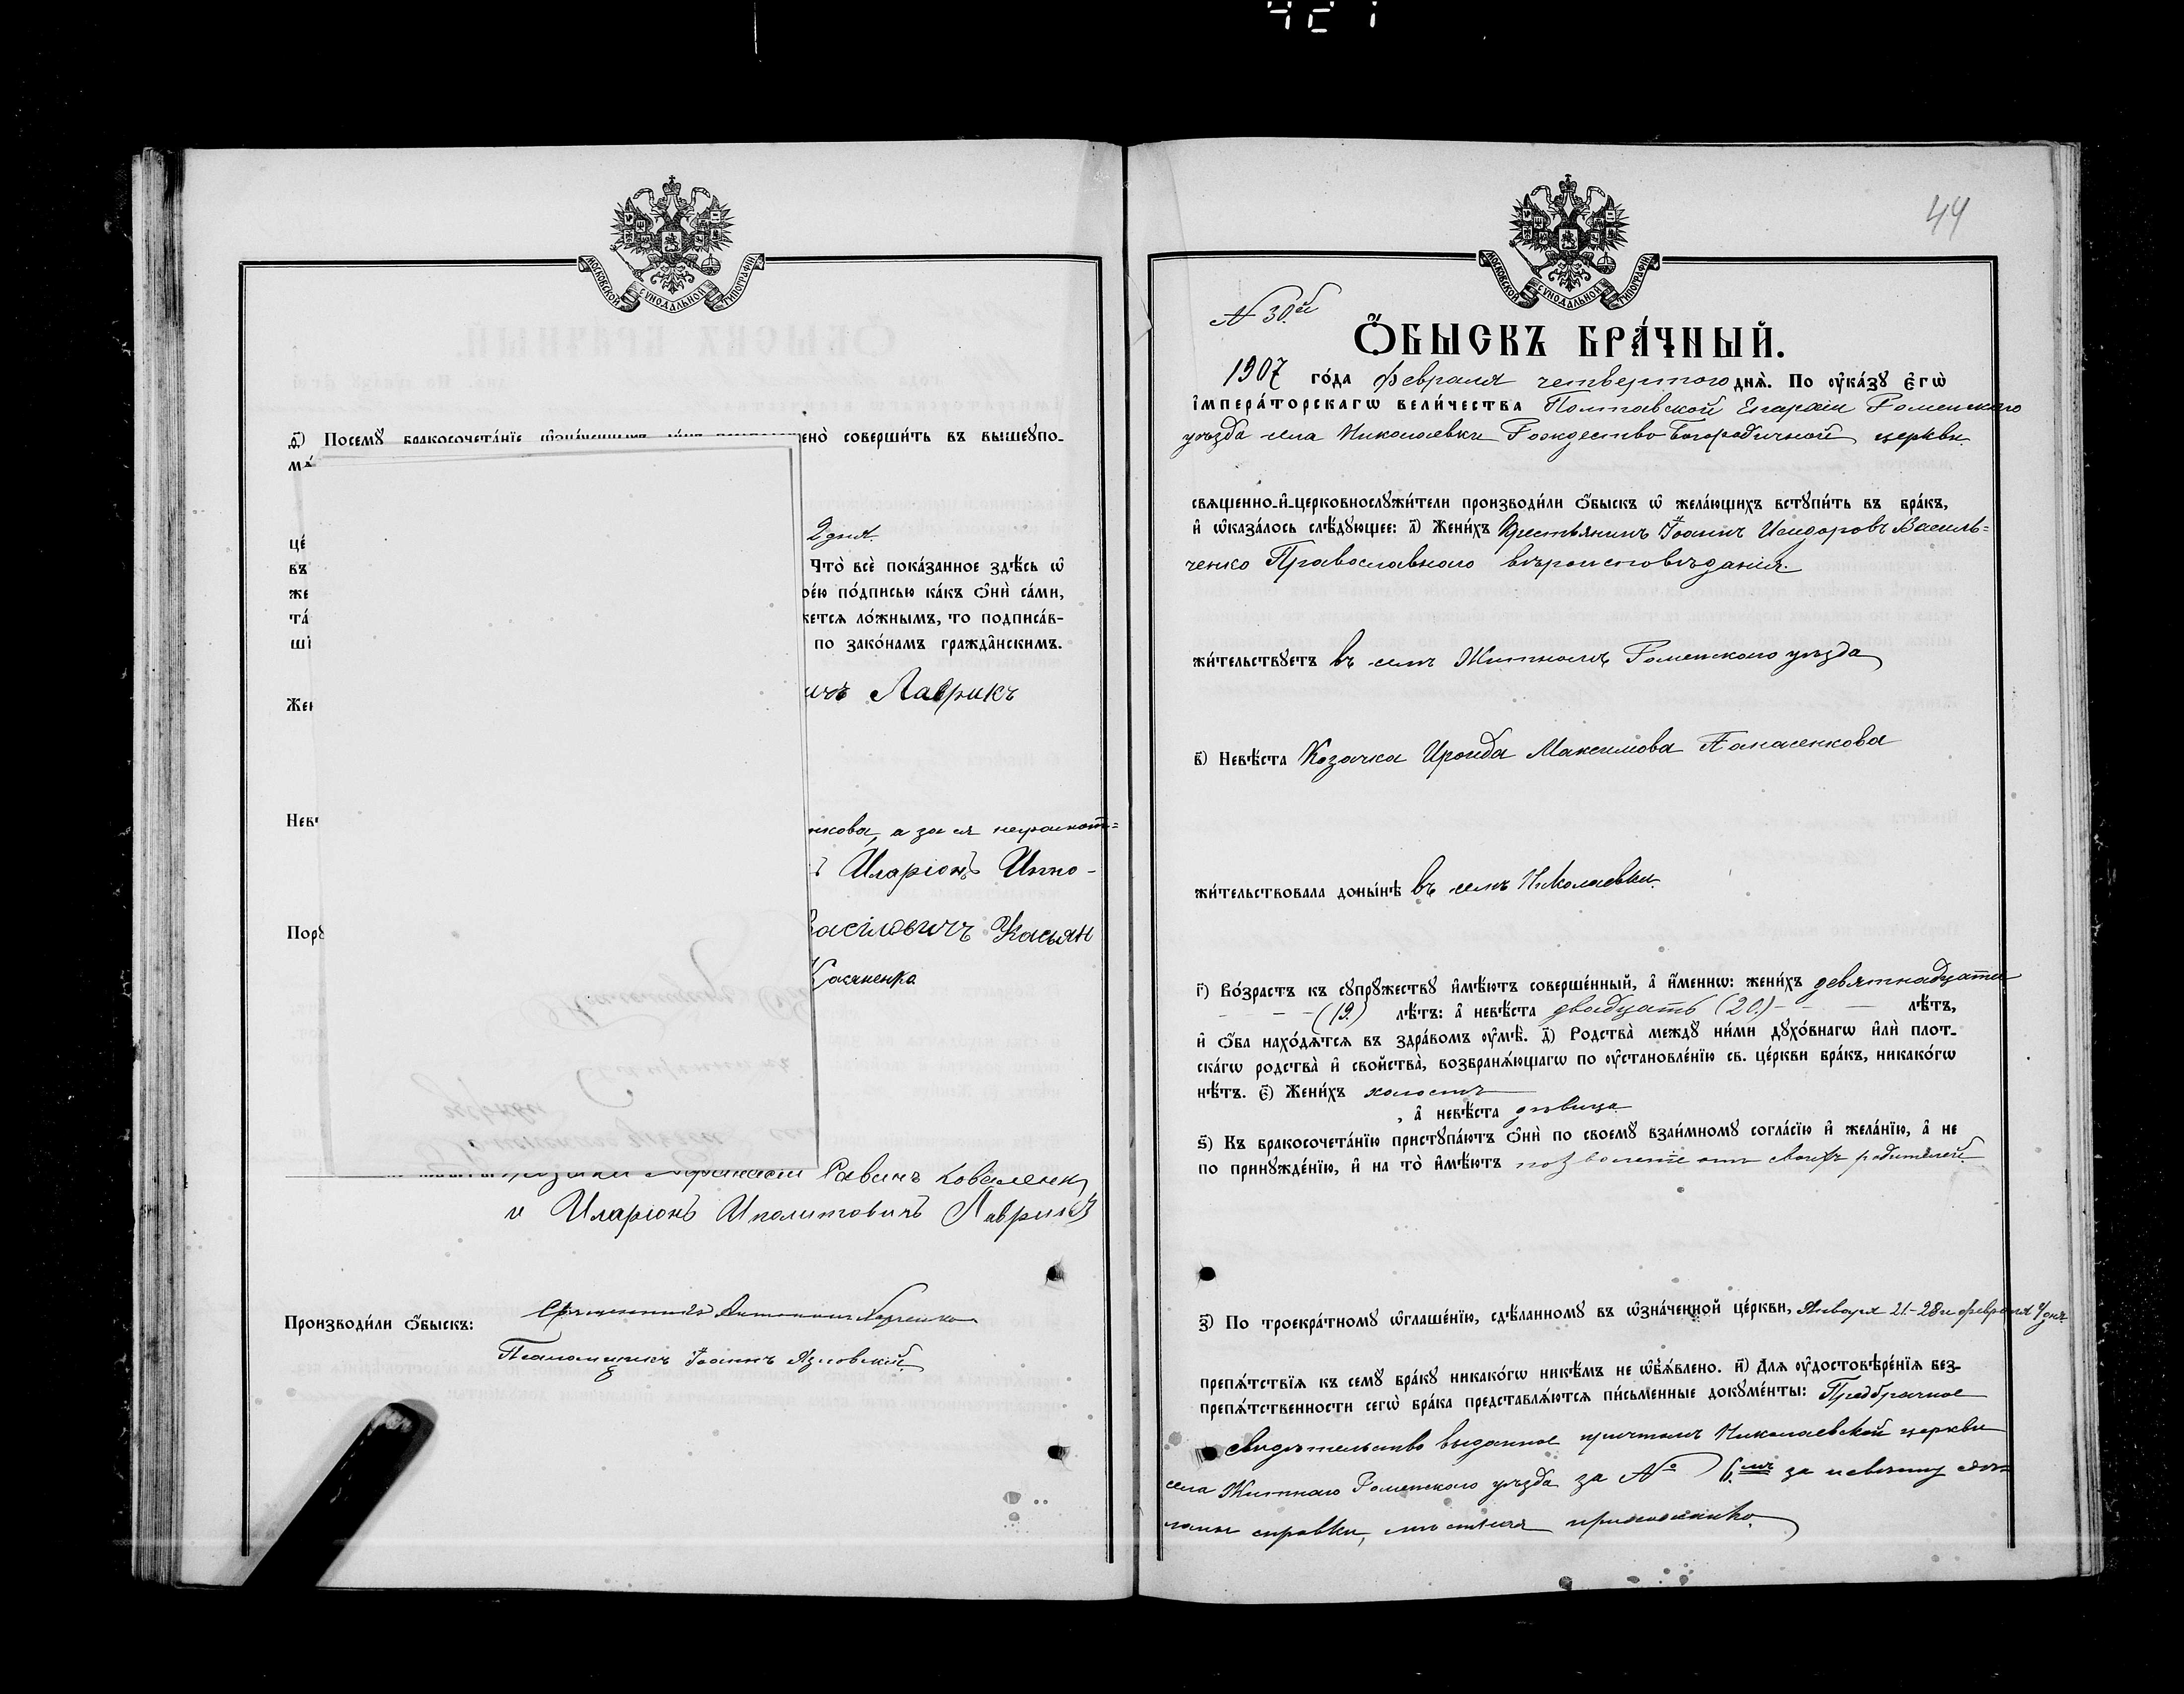 421
МОСКОВСКОЙ СУНОДАЛЬНОЙ ТИПОГРАФІИ
ѳ҃) Посемꙋ бракосочета́нїе
ено̀ соверши́ть въ вышеупо-
це́
2 дня.
въ
Что̀ всѐ пока́занное здѣ́сь ѡ҆
же
ре́ю по́дписью ка́къ ѻ҆нѝ са́ми,
та́
жется ло́жнымъ, то подписа́в-
ші
по зако́намъ гражда́нскимъ.
Жен
ичъ Лаврикъ
Невѣ
нкова, а за ея неграмот=
ъ Иларіонъ Иппо-
Порꙋ
Васіловичъ Касьян
Касяненко
Савинъ Коваленко
и Иларіонъ Иполитовичъ Лаврикъ
Производи́ли ѻ҆́быскъ: Священникъ
Псаломщикъ Іоаннъ Язловскій
44
МОСКОВСКОЙ СУНОДАЛЬНОЙ ТИПОГРАФІИ
N 30.й
Ѻ҆́БЫСКЪ БРА́ЧНЫЙ.
1907 го́да февраля четвертого дня̀. По ᲂу҆ка́зꙋ є҆гѡ̀
і҆мпера́торскагѡ вели́чества Полтавской Епархіи Роменского
уѣзда села Николаевки Рождество-Богородичной церкви
свѧщенно-и҆-церковнослꙋжи́тели производи́ли ѻ҆́быскъ ѡ҆ жела́ющихъ встꙋпи́ть въ бра́къ,
и҆ ѡ҆каза́лось слѣ́дꙋющее: а҃) Жени́хъ Крестьянинъ Іоаннъ Исидоровъ Василь=
ченко Православного вѣроисповѣданія.
жи́тельствꙋетъ въ селѣ Житномъ Роменского уѣзда
в҃) Невѣ́ста Козачка Ироида Максимова Панасенкова
жи́тельствовала доны́нѣ въ селѣ Николаевки.
г҃) Во́зрастъ къ сꙋпрꙋ́жествꙋ и҆мѣ́ютъ соверше́нный, а҆ и҆́меннѡ: жени́хъ девятнадцати
- - - (19.) лѣ́тъ: а҆ невѣ́ста двадцать (20.) - - - лѣ́тъ,
и҆ ѻ҆́ба нахо́дѧтсѧ въ здра́вомъ ᲂу҆мѣ̀. д҃) Родства̀ междꙋ̀ ни́ми дꙋхо́внагѡ и҆лѝ плот-
ска́гѡ родства̀ и҆ сво́йства̀, возбранѧ́ющагѡ по ᲂу҆становле́нїю св. це́ркви бра́къ, никако́гѡ
нѣ́тъ. є҃) Жени́хъ холостъ
, а҆ невѣ́ста дѣвица
ѕ҃) Къ бракосочета́нїю пристꙋпа́ютъ ѻ҆нѝ по своемꙋ̀ взаи́мномꙋ согла́сїю и҆ жела́нїю, а҆ не
по принꙋжде́нїю, и҆ на то̀ и҆мѣ́ютъ позволеніе отъ своихъ родителей.
з҃) По троекра́тномꙋ ѡ҆глаше́нїю, сдѣ́ланномꙋ въ ѡ҆зна́ченной це́ркви, Января 21.-28 и февраля 4 дня
препѧ́тствїѧ къ семꙋ̀ бра́кꙋ никако́гѡ никѣ́мъ не ѡ҆б̾ѧ́влено. и҃) Для ᲂу҆достовѣре́нїѧ без-
препѧ́тственности сегѡ̀ бра́ка представлѧ́ютсѧ пи́сьменные докꙋме́нты: Предбрачное
свидѣтельство выданное причтомъ Николаевской церкви
села Житнаго Роменского уѣзда за № 6.мъ за невѣсту
справки,